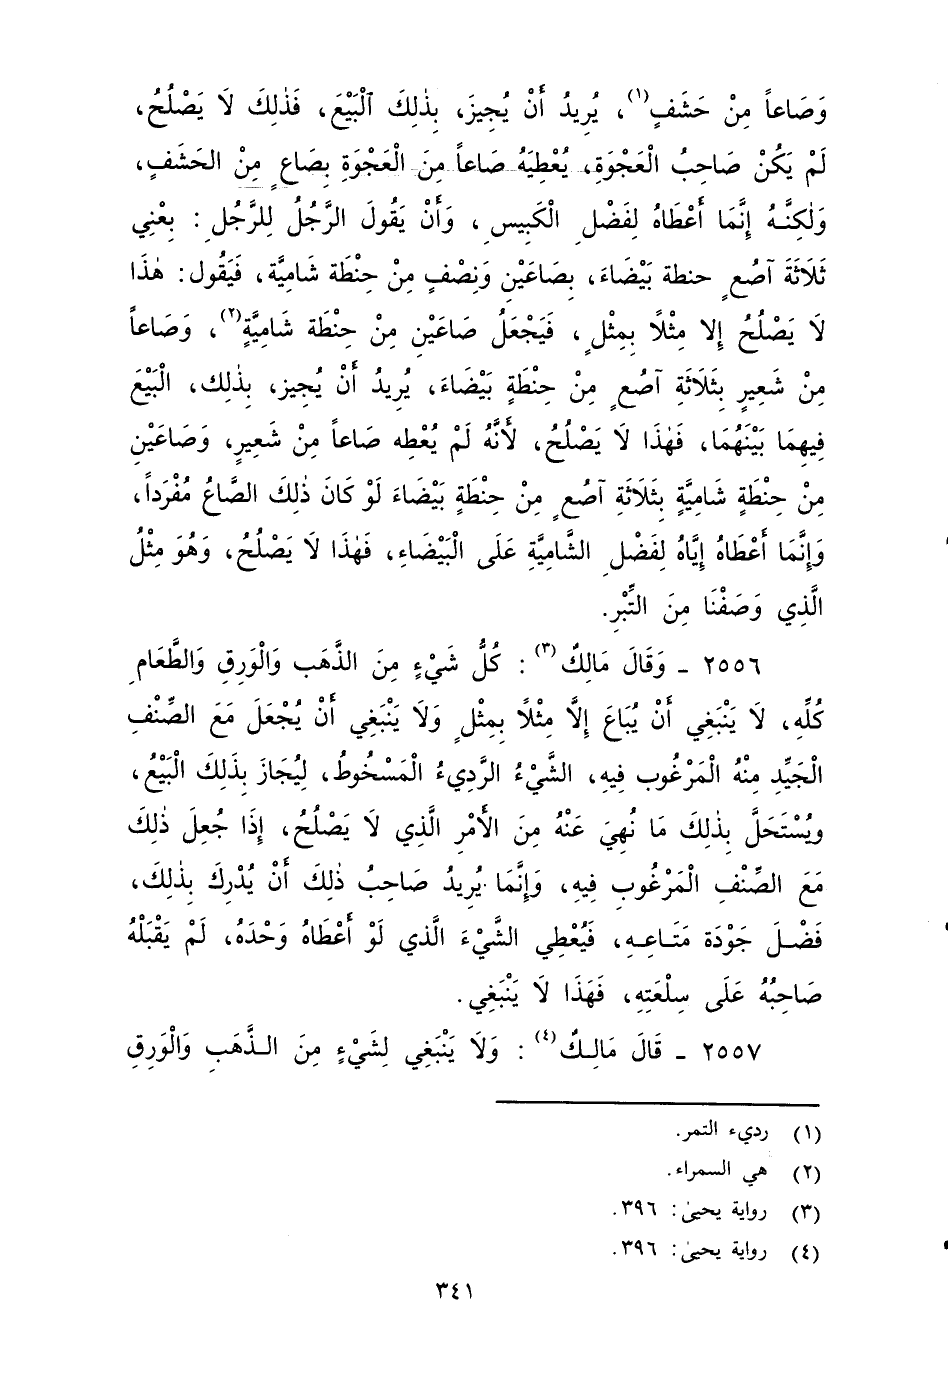 وَصَاعاً مِنْ حَشَفٍ(١)، يُرِيدُ أَنْ يُجِيزَ، بِذٰلِكَ ٱلْبَيْعَ، فَذٰلِكَ لَا يَصْلُحُ،
لَمْ يَكُنْ صَاحِبُ الْعَجْوَةِ، يُعْطِيَهُ صَاعاً مِنَ الْعَجْوَةِ بِصَاعٍ مِنْ الحَشَفٍ،
وَلٰكِنَّهُ إِنَّمَا أَعْطَاهُ لِفَضْلِ الْكَبِيسِ، وَأَنْ يَقُولَ الرَّجُلُ لِلرَّجُلِ: بِعْنِي
ثَلَاثَةَ آصُعٍ حنطة بَيْضَاءَ، بِصَاعَيْنِ وَنِصْفٍ مِنْ حِنْطَة شَامِيَّة، فَيَقُول: هٰذَا
لَا يَصْلُحُ إِلا مِثْلًا بِمِثْلٍ، فَيَجْعَلُ صَاعَيْنِ مِنْ حِنْطَة شَامِيَّةٍ(٢)، وَصَاعاً
مِنْ شَعِيرٍ بِثَلَاثَةِ آصُعٍ مِنْ حِنْطَةٍ بَيْضَاءَ، يُرِيدُ أَنْ يُجِيز، بِذٰلِك، الْبَيْعَ
فِيهِمَا بَيْنَهُمَا، فَهٰذَا لَا يَصْلُحُ، لأَنَّهُ لَمْ يُعْطِه صَاعاً مِنْ شَعِيرٍ، وَصَاعَيْنِ
مِنْ حِنْطَةٍ شَامِيَّةٍ بِثَلَاثَةِ آصُعٍ مِنْ حِنْطَةٍ بَيْضَاءَ لَوْ كَانَ ذٰلِكَ الصَّاعُ مُفْرَداً،
وَإِنَّمَا أَعْطَاهُ إِيَّاهُ لِفَضْلِ الشَّامِيَّةِ عَلَى الْبَيْضَاءِ، فَهٰذَا لَا يَصْلُحُ، وَهُوَ مِثْلُ
الَّذِي وَصَفْنَا مِنَ التِّبْرِ.
٢٥٥٦ ـ وَقَالَ مَالِكٌ(٣): كُلُّ شَيْءٍ مِنَ الذَّهَب وَالْوَرِقِ وَالطَّعَامِ
كُلِّهِ، لَا يَنْبَغِي أَنْ يُبَاعَ إِلَّا مِثْلًا بِمِثْلٍ وَلَا يَنْبَغِي أَنْ يُجْعَلَ مَعَ الصِّنْفِ
الْجَيِّدِ مِنْهُ الْمَرْغُوبِ فِيهِ، الشَّيْءُ الرَّدِيءُ الْمَسْخُوطُ، لِيُجَازَ بِذَلِكَ الْبَيْعُ،
ويُسْتَحَلَّ بِذٰلِكَ مَا نُهِيَ عَنْهُ مِنَ الأَمْرِ الَّذِي لَا يَصْلُحُ، إِذَا جُعِلَ ذٰلِكَ
مَعَ الصِّنْفِ الْمَرْغُوبِ فِيهِ، وَإِنَّمَا يُرِيدُ صَاحِبُ ذٰلِكَ أَنْ يُدْرِكَ بِذٰلِكَ،
فَضْلَ جَوْدَة مَتَاعِهِ، فَيُعْطِي الشَّيْءَ الَّذي لَوْ أَعْطَاهُ وَحْدَهُ، لَمْ يَقْبَلْهُ
صَاحِبُهُ عَلَى سِلْعَتِهِ، فَهَذَا لَا يَنْبَغِي.
٢٥٥٧ ـ قَالَ مَالِكٌ(٤): وَلَا يَنْبَغِي لِشَيْءٍ مِنَ الذَّهَبِ وَالْوَرِقِ
(١) رديء التمر.
(٢) هي السمراء.
(٣) رواية يحيىٰ: ٣٩٦.
(٤) رواية يحيىٰ: ٣٩٦.
٣٤١